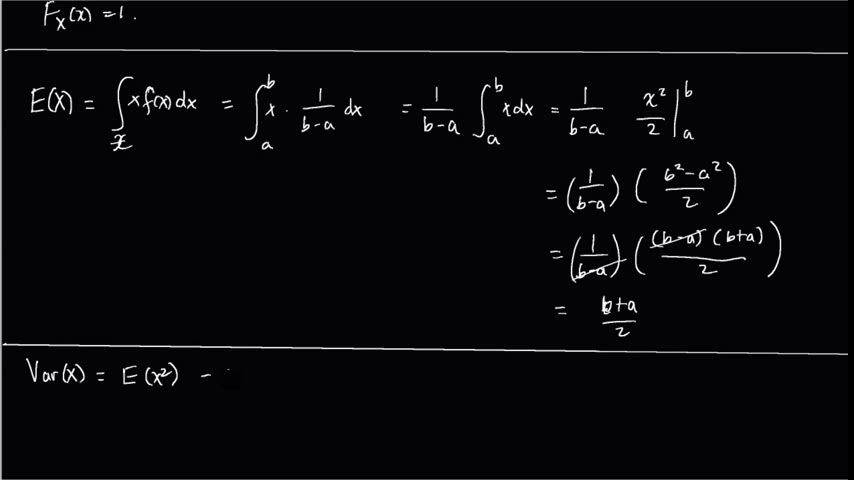 F_X(x) = 1.
E(X) = ∫_𝒳 x f(x) dx = ∫_a^b x · 1/(b-a) dx = 1/(b-a) ∫_a^b x dx = 1/(b-a) x²/2 |_a^b
= (1/(b-a)) ((b²-a²)/2)
= (1/(b-a)) ((b-a)(b+a)/2)
= (b+a)/2
Var(X) = E(X²) -